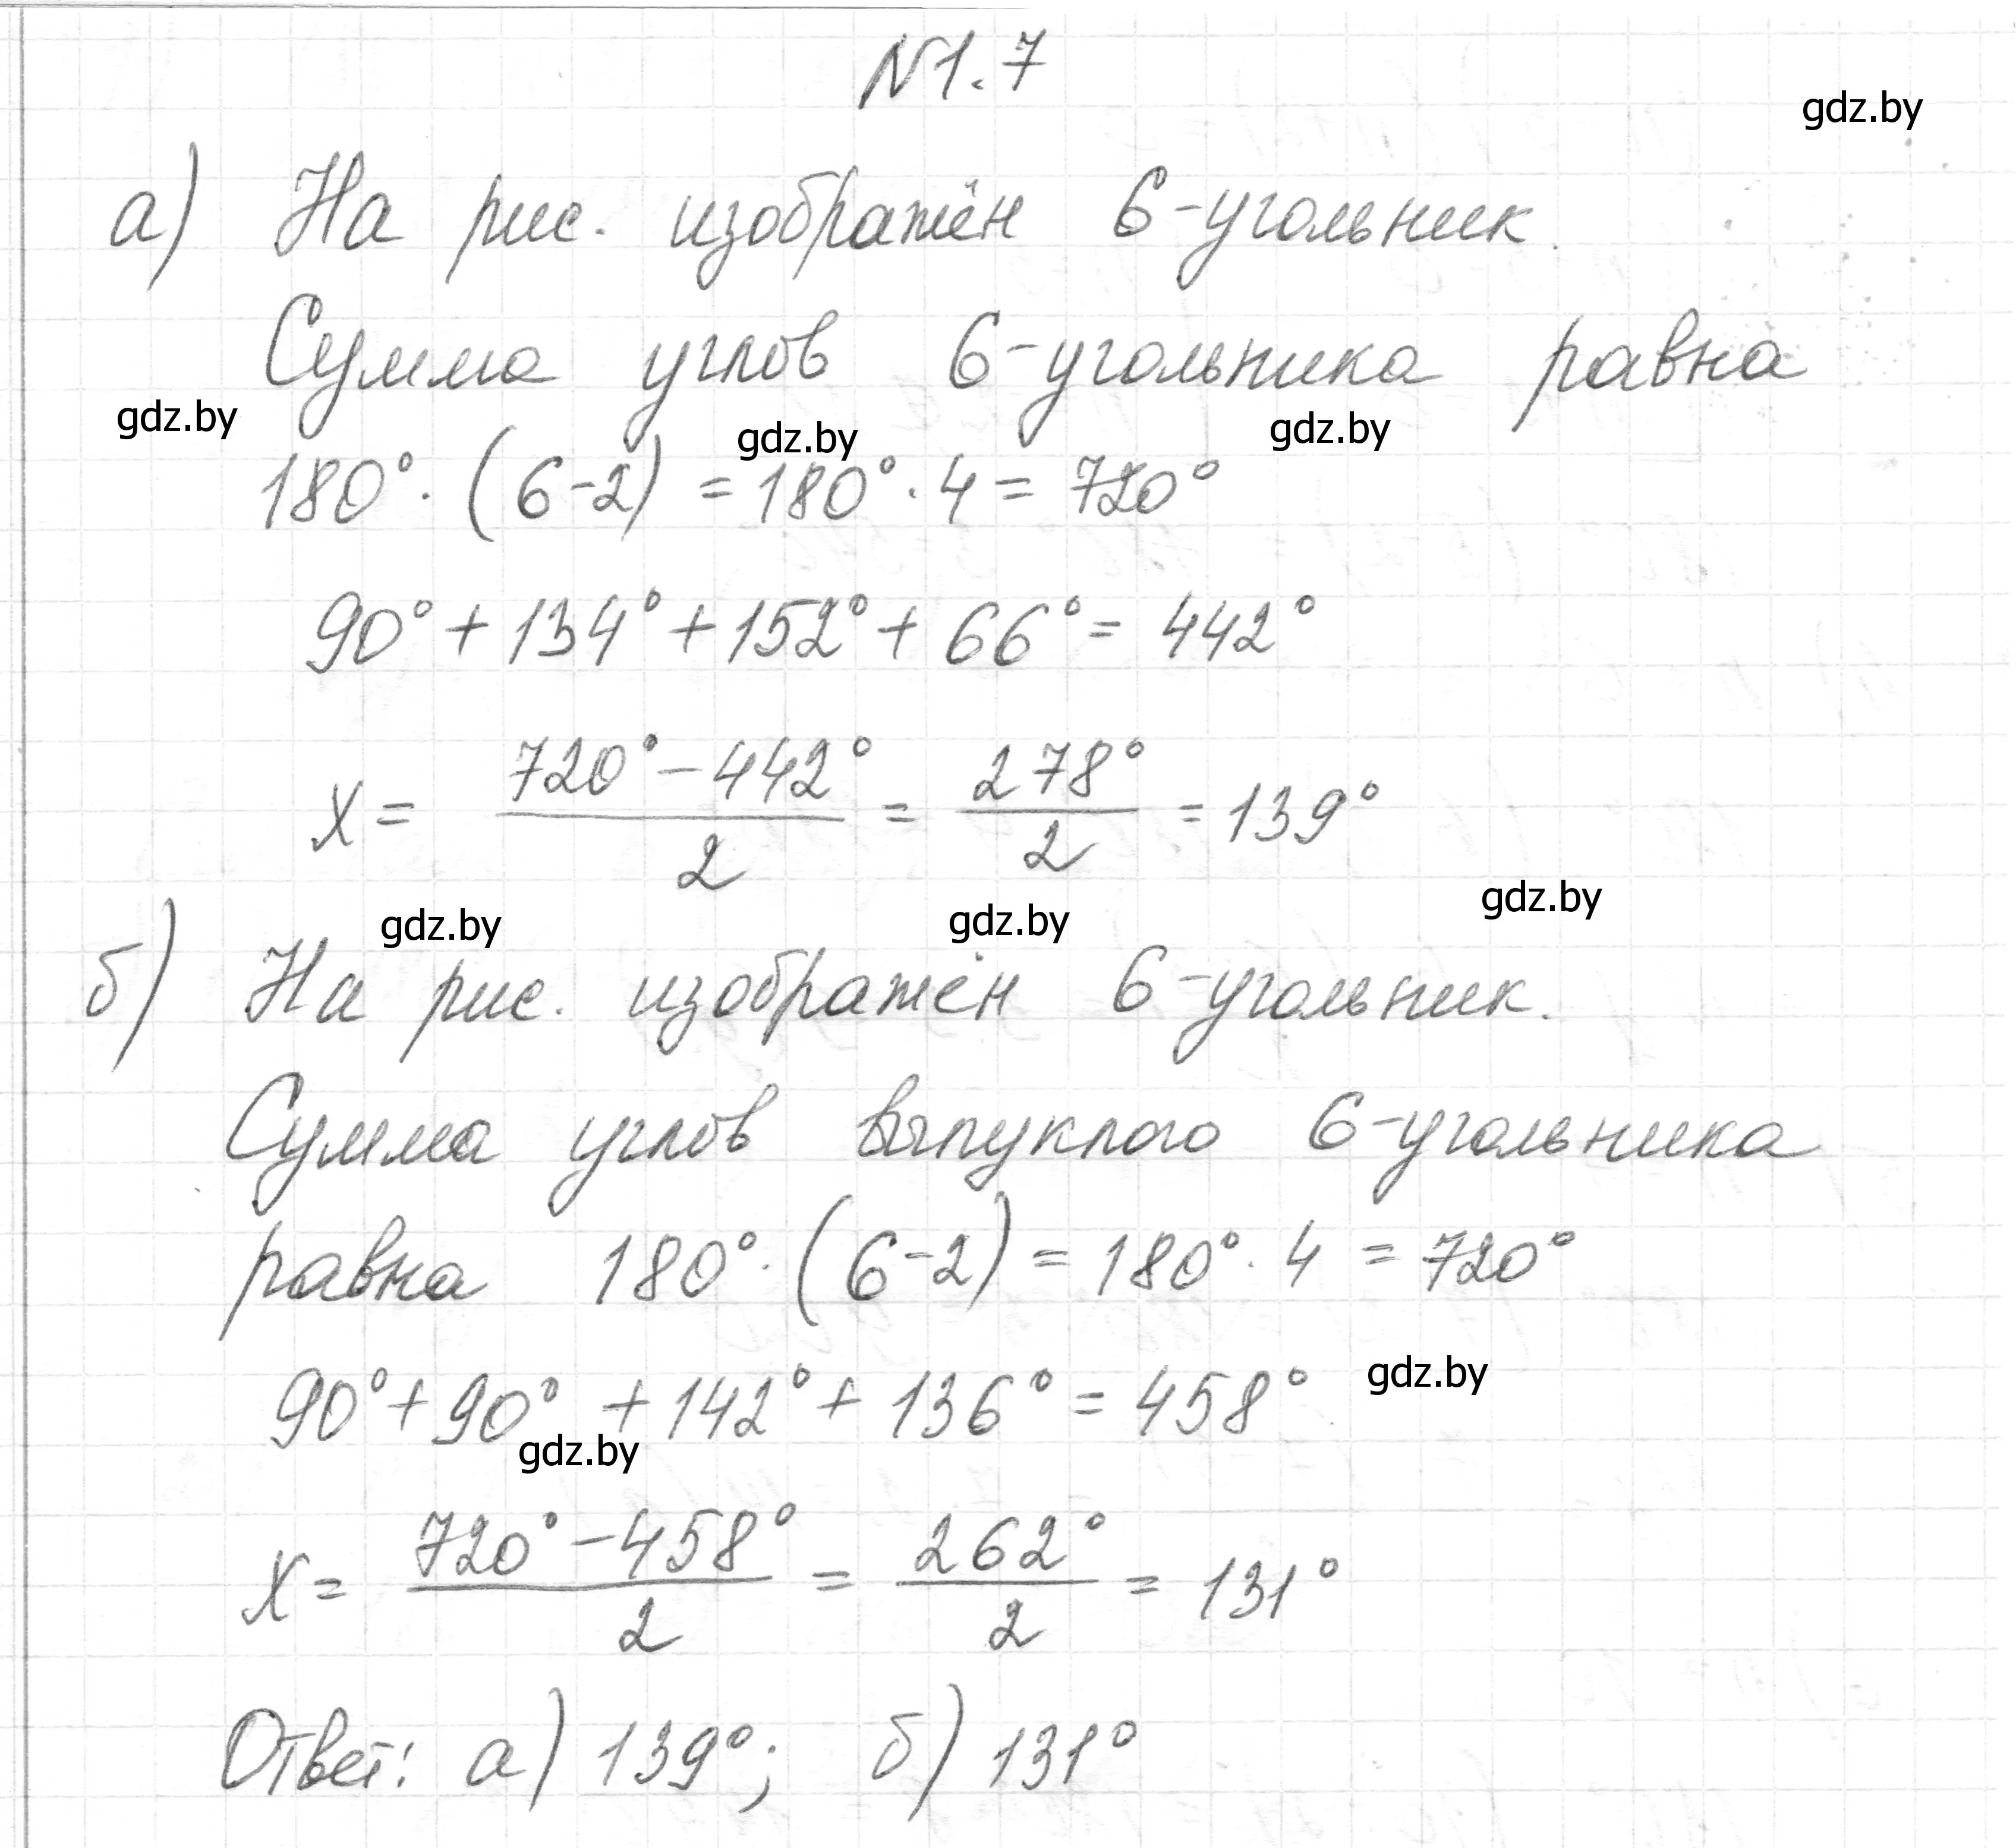 N1.7
gdz.by
а) На рис. изображён 6-угольник.
Сумма углов 6-угольника равна
gdz.by gdz.by gdz.by
180°·(6-2) = 180°·4 = 720°
90° + 134° + 152° + 66° = 442°
x = (720° - 442°)/2 = 278°/2 = 139°
gdz.by gdz.by gdz.by
б) На рис. изображён 6-угольник.
Сумма углов выпуклого 6-угольника
равна 180°·(6-2) = 180°·4 = 720°
90° + 90° + 142° + 136° = 458° gdz.by
gdz.by
x = (720° - 458°)/2 = 262°/2 = 131°
Ответ: а) 139°; б) 131°